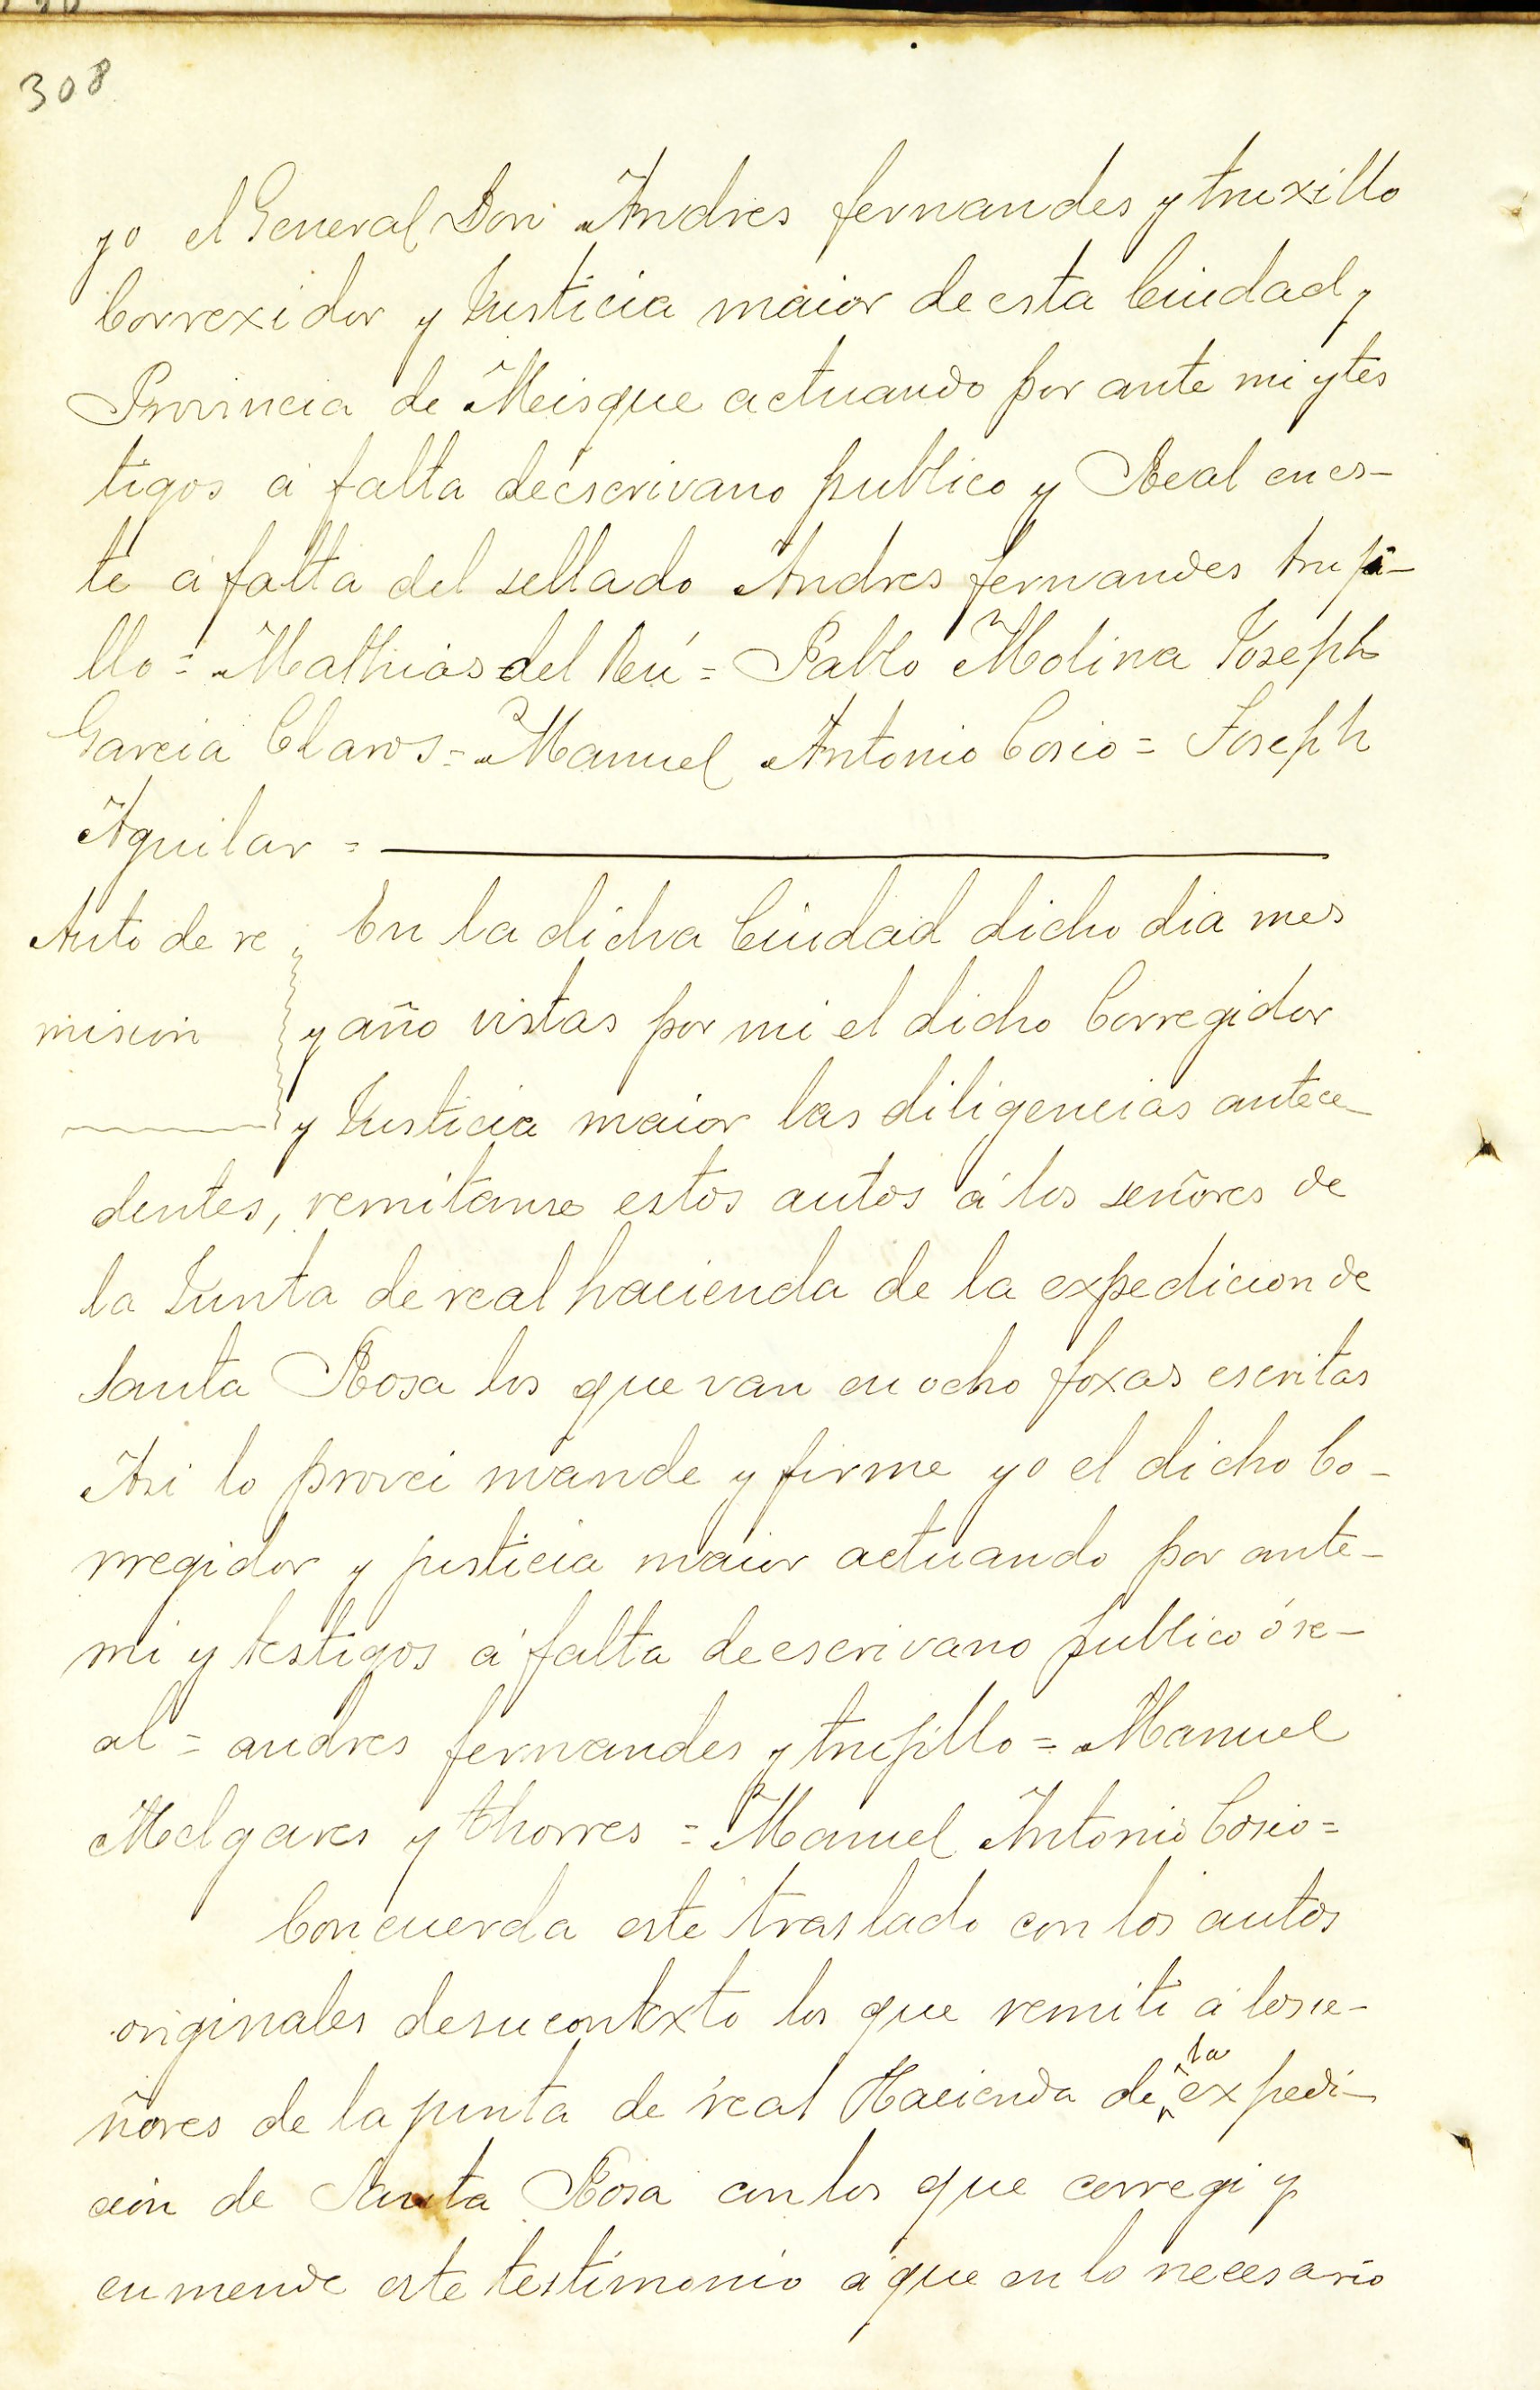 308
yo el General Don Andres fernandes y truxillo
Correxidor y Justicia maior de esta Ciudad y
Provincia de Meisque actuando por ante mi y tes
tigos á falta de escrivano publico y Real en es-
te á falta del sellado Andres fernandes truji-
llo = Mathias del Reú = Pablo Molina Joseph
Garcia Claros = Manuel Antonio Cosio = Joseph
Aguilar =
Auto de re
mision
En la dicha Ciudad dicho dia mes
y año vistas por mi el dicho Corregidor
y Justicia maior las diligencias antece-
dentes, remitanse estos autos á los señores de
la Junta de real hacienda de la expedicion de
Santa Rosa los que van en ocho foxas escritas
Asi lo provei mande y firme yo el dicho Co-
rregidor y justicia maior actuando por ante-
mi y testigos á falta de escrivano publico ó re-
al = andres fernandes y trujillo = Manuel
Melgares y thorres = Manuel Antonio Cosio =
Concuerda este traslado con los autos
originales de su contexto los que remiti á los se-
ñores de la junta de real Hacienda de la expedi-
cion de Santa Rosa con los que corregi y
enmende este testimonio á que en lo necesario